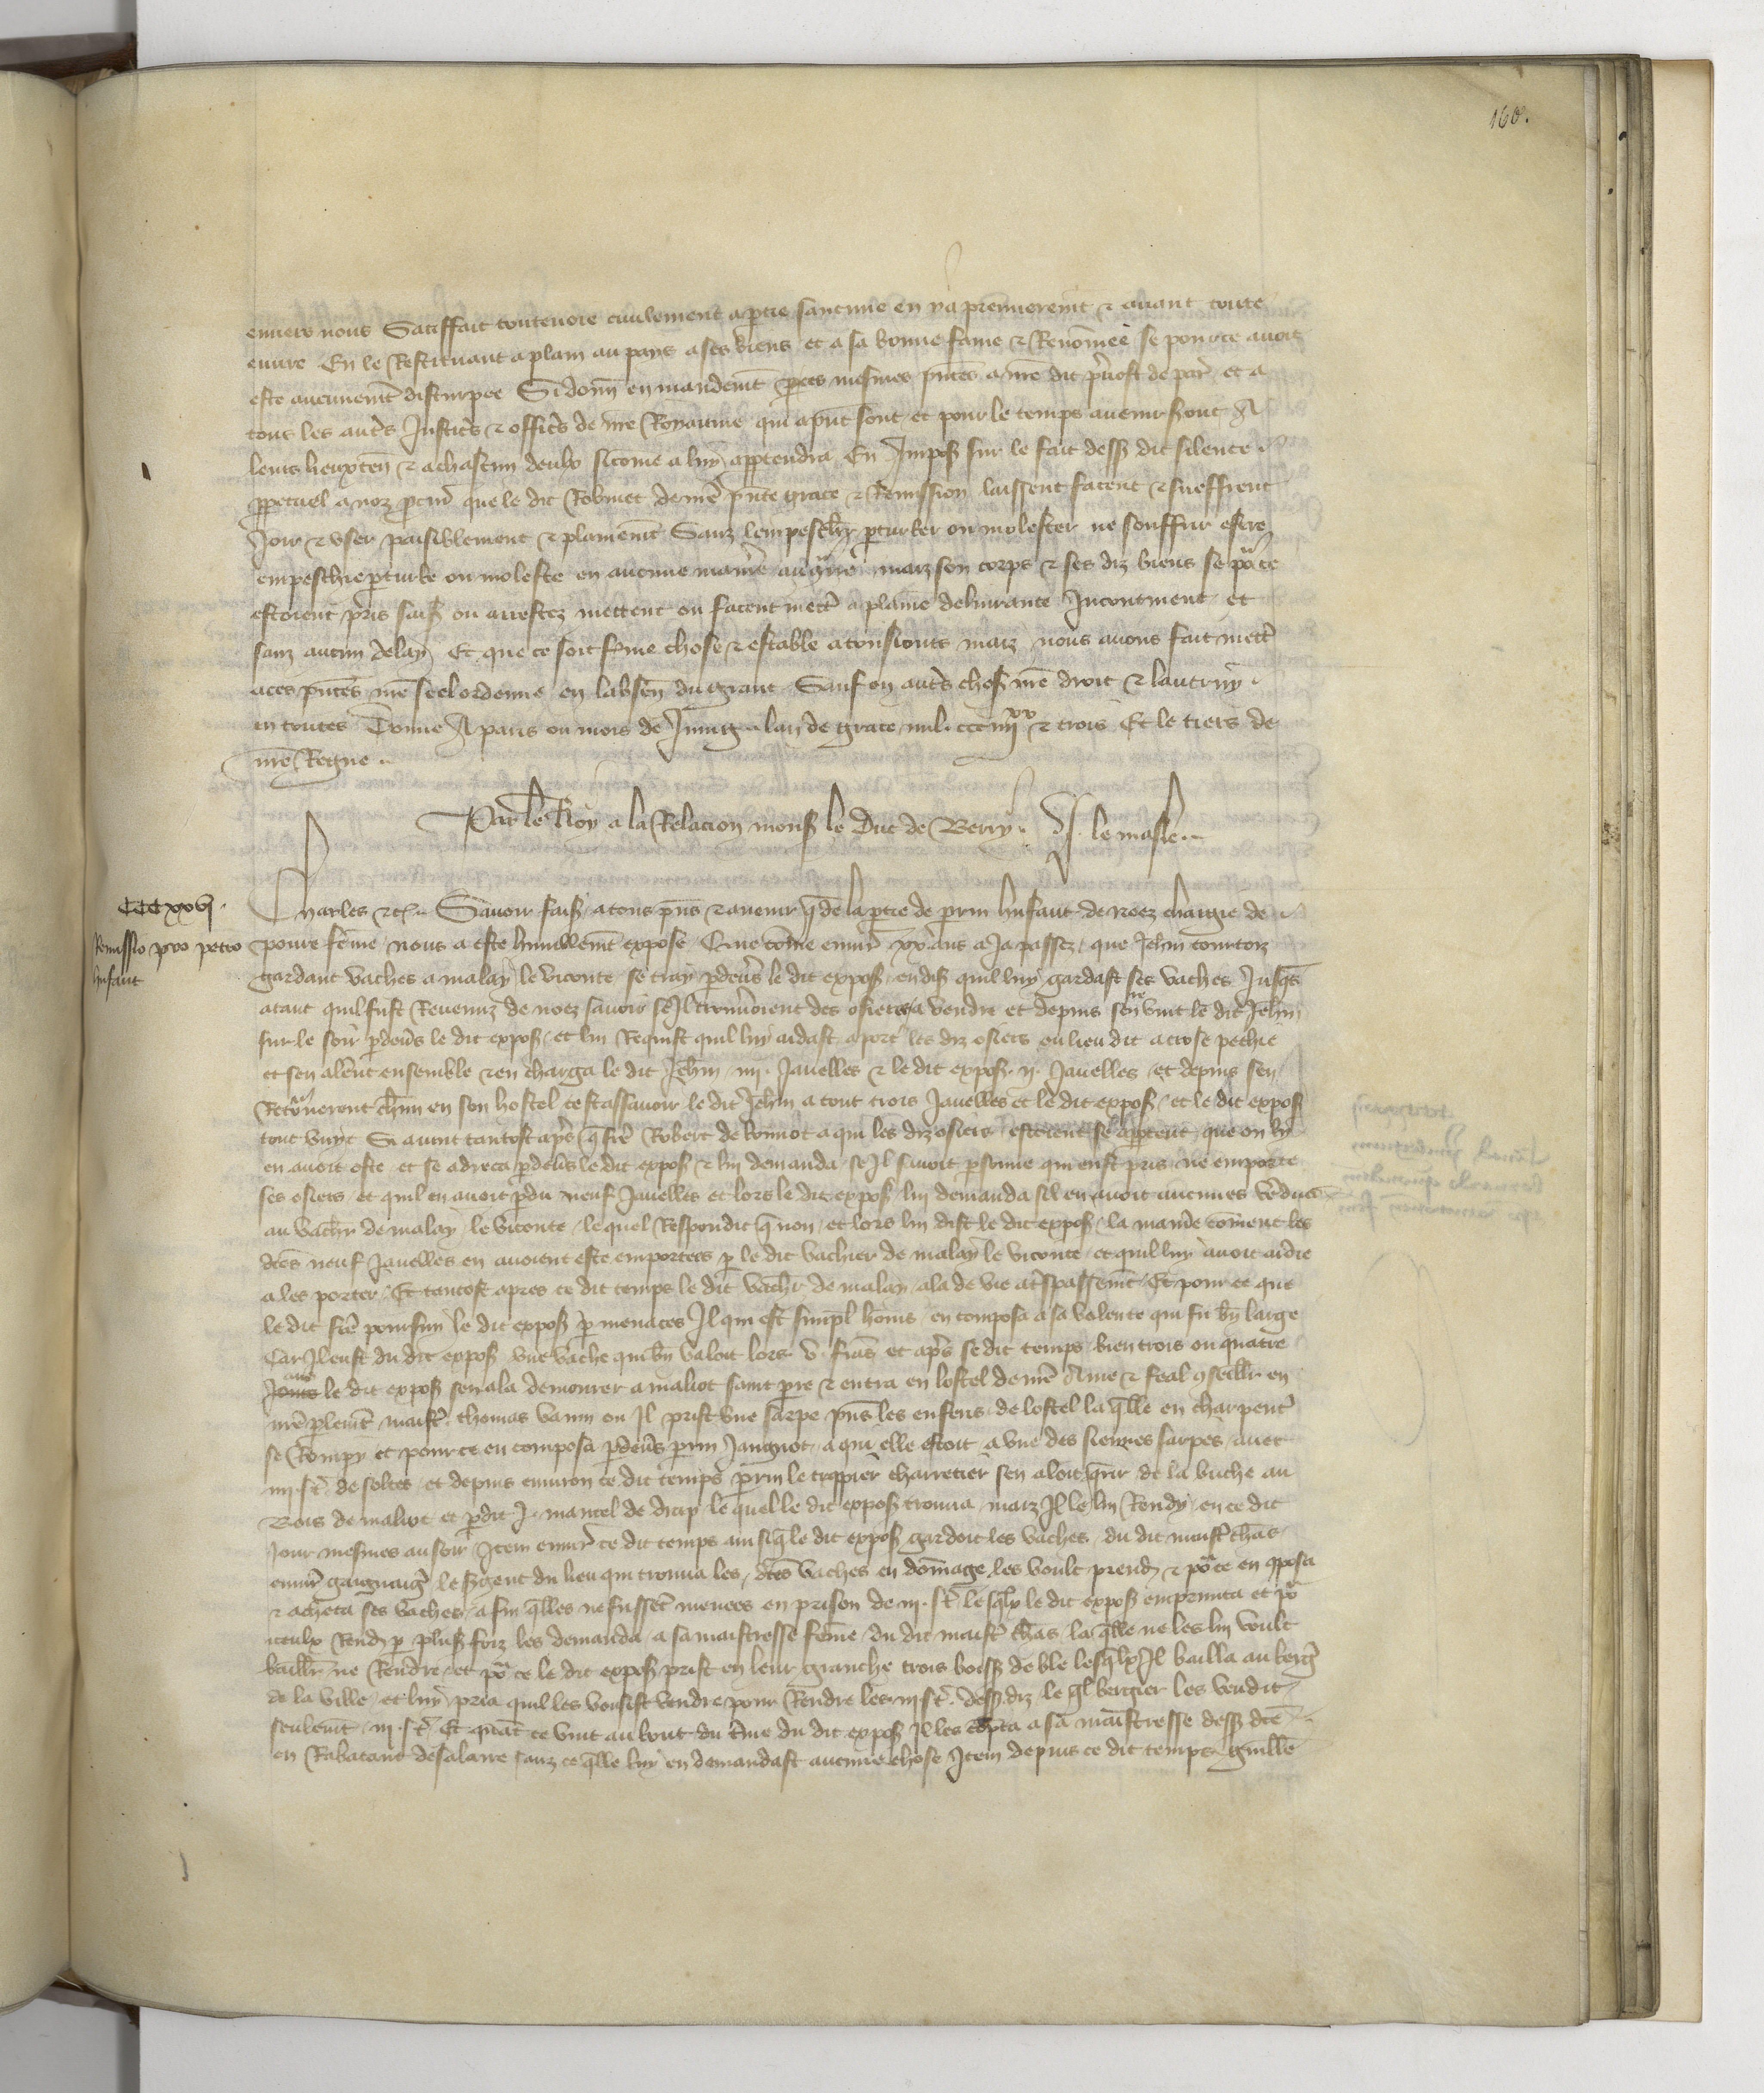 168.
enuers nous Satiffait toutevoie ciuilement a ptie sancune en ya premierement & auant toute
euure En le Restituant a plain au pays a ses biens et a sa bonne fame & Renommee se pource auoit
este aucunement disturpee Si donn en mandement p ces mesmes pntes a nre dit preuost de par et a
tous les autres Justiciers & officiers de nre Royaume qui a pnt sont et pour le temps auenir Sont A
leurs lieuxten & a chascun deulx sicome a luy apptendra En Imposant sur le fait dess dit silence
ppetuel a noz pcur que le dit Robinet de nre pnte grace & Remission laissent facent & sueffrent
Joir & vser paisiblement & plainement Sanz lempeschier pturber ou molester ne souffrir estre
empeschie pturbe ou moleste en aucune maniere au maiz son corps & ses diz biens se pour ce
estoient pris saisi ou arrestez mettent ou facent mettre a plaine deliurance Incontinent et
sanz aucun delay Et que ce soit ferme chose & estable a tousiours maiz nous auons fait mettre
a ces pntes nre seel ordonne en labsen du grant Sauf en autres choses nre droit & lautruy
en toutes Donne A paris ou mois de Juing lan de grace mil ccc iiii xx & trois Et le tiers de
nre Regne
Par le Roy a la Relacion mons le Duc de Berry. le masle
CCCxxvj.
Remissio pro petro
Infant
Charles &c Sauoir faiss a tous pns & auenir que de la ptie de prin Infant de noez chargie de
poure feme nous a este humblement expose Que come enuiron xx ans a Ja passez que Jehn courtoiz
gardant vaches a malay le viconte se tray pdeuers le dit expos en diss quil luy gardast ses vaches Jusqs
atant quil fust Reuenuz de noez sauoir se Il trouueroient des osiers a vendre et depuis sen vint le dit Jehn
sur le soir pdeuers le dit expos et lui Requist quil luy aidast a porter les diz osiers ou lieu dit a crose pechie
et sen alerent ensemble & en charga le dit Jehn iiii Jauelles & le dit expos ii Jauelles et depuis sen
Retournerent chun en son hostel cestassauoir le dit Jehn a tout trois Jauelles et le dit expos et le dit expos
tout vuyt Si auint tantost apres que frere Robert de bonnot a qui les diz osiers estoient se apptcut que on luy
en auoit oste et se adreca pdeuers le dit expos & lui demanda se Il sauoit psonne qui eust pris ne emporte
ses osiers et quil en auoit pdu neuf Jauelles et lors le dit expos lui demanda sil en auoit aucunes vendues
au vachier de malay le viconte lequel Respondit que non et lors lui dist le dit expos la maniere coment les
dces neuf Jauelles en auoient este emportees p le dit vachier de malay le viconte et quil luy auoit aidie
a les porter Et tantost apres ce dit temps le dit vachr de malay ala de vie a trespassement Et pour ce que
le dit frere poursui le dit expos p menaces Il qui est simple homs en composa a sa volente qui fu bn large
Car Il eust du dit expos vne vache qui bn valoit lors v frans et apres se dit temps bien trois ou quatre
ans
le dit expos sen ala demourer a maliot saint pere & entra en lostel de nre Ame & feal conseillr en
nre plement maistre thomas vanin ou Il prist vne sarpe pns les enfens de lostel la qlle en charpent
se Rompy et pource en composa pdeuers prin Jauguot a qui elle estoit a vne des siennes sarpes auec
iii s. de soltes et depuis enuiron ce dit temps prin le trippier charretier sen aloit querir de la buche au
Bois de maliot et pdit J mantel de drap lequel le dit expos trouua maiz Il le lui Rendy en ce dit
Jour mesmes au soir Item enuir ce dit temps ainsi que le dit expos gardoit les vaches du dit maistre thas
enuir le sgent du lieu qui trouua les dces vaches en domage les voult prendre & pource en composa
& acheta ses vaches a fin qlles ne fussent menees en prison de iii s. lesqlx le dit expos emprunta et pour
iceulx Rendre p plus foiz les demanda a sa maistresse feme du dit maistre thas la qlle ne les lui voult
baillr ne Rendre et pour ce le dit expos prist en leur granche trois boiss de ble lesqlx Il bailla au bergr
de la ville et luy pria quil les vousist vendre pour Rendre les iii s. dess diz le ql bergier les vendit
seulement iii s. Et quant ce vint au bout du terme du dit expos Il les compta a sa maistresse dess dce
en Rabatant de salaire sanz ce qlle luy en demandast aucune chose Item depuis ce dit temps Guille